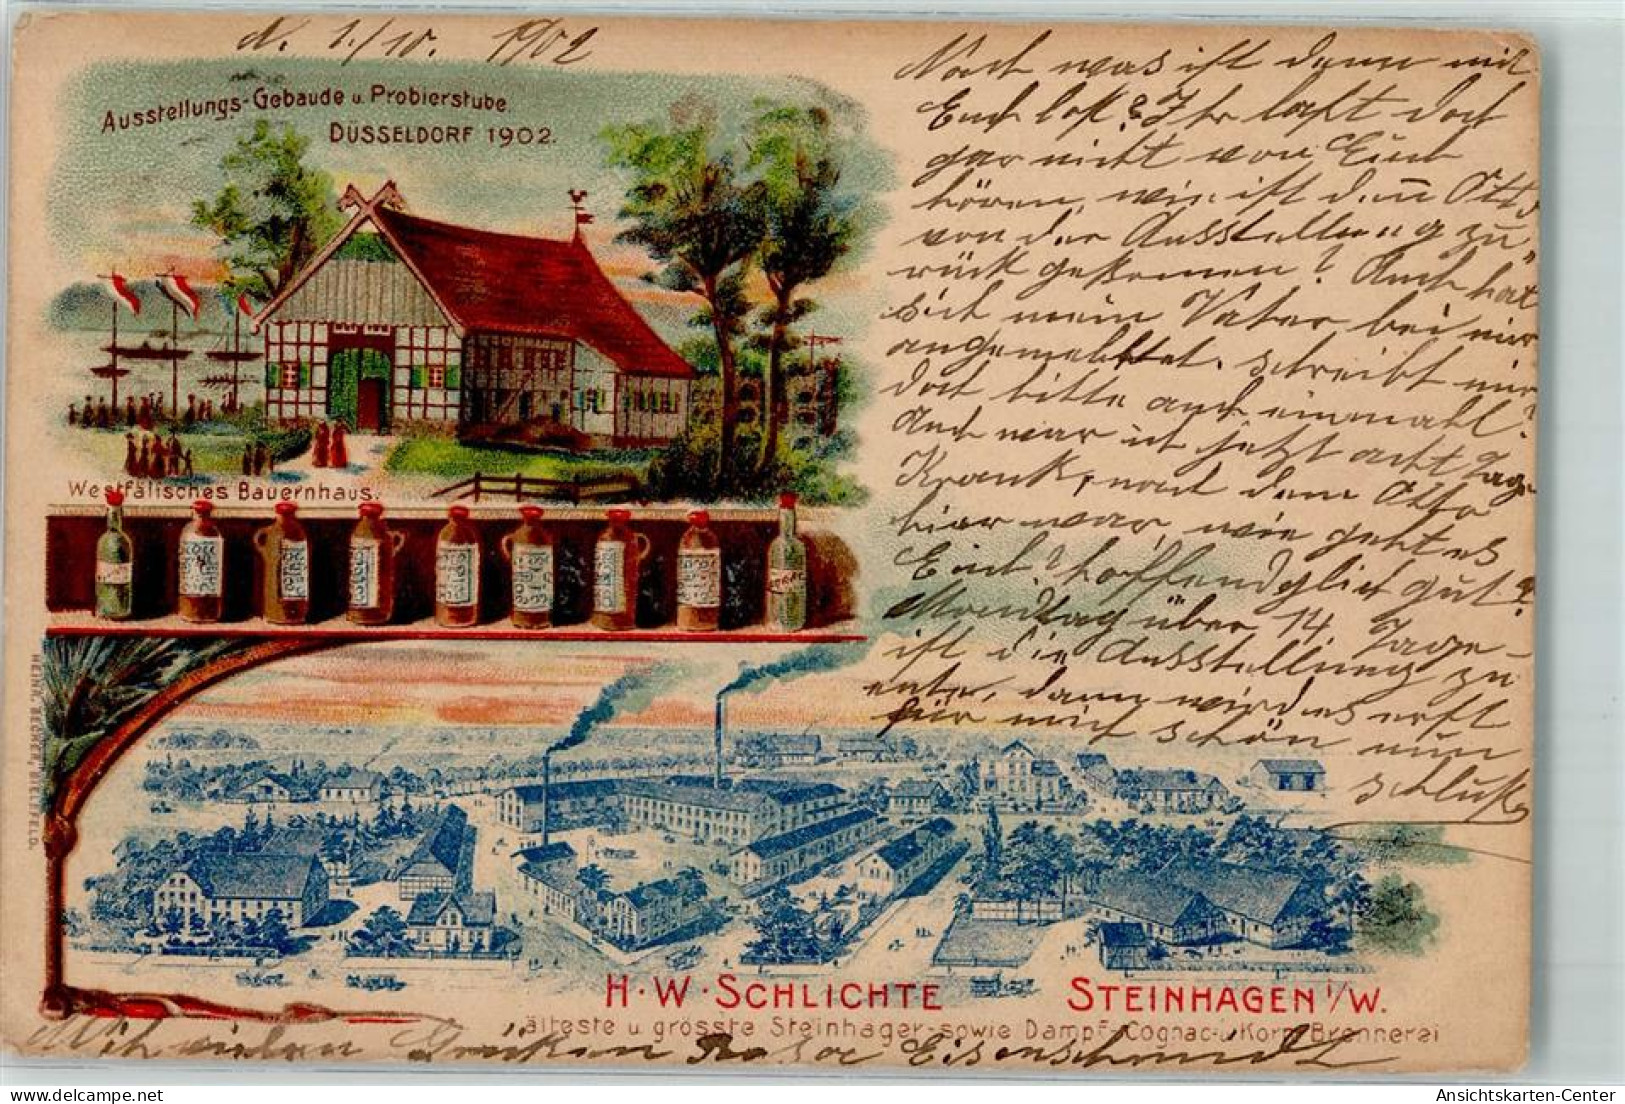 d. 1./10. 1902
Ausstellungs-Gebäude u. Probierstube.
DÜSSELDORF 1902.
Westfälisches Bauernhaus.
Noch was ist denn mit
Euch los? Ihr laßt doch
gar nicht von Euch
hören, wie ist den̄ Otto
von der Ausstellung zu"
rück gekommen? Auch hat
sich mein Vater bei mir
angemeldet. schreibt mir
doch bitte auch einmahl.
Auch war ich jetzt acht Tage
Krank, nach dem Otto
hier war, wie geht es
Euch? hoffendglich gut?
Mondtag über 14 Tage
ist die Ausstellung zu
ente, dann wird es erst
für mich schön nun
schluß
HEINR. BEUGER, BIELEFELD.
H·W·SCHLICHTE STEINHAGEN i/W.
älteste u grösste Steinhager-sowie Dampf-Cognac-u Korn-Brennerei
Mit vielen Grüßen Eisenschmidt